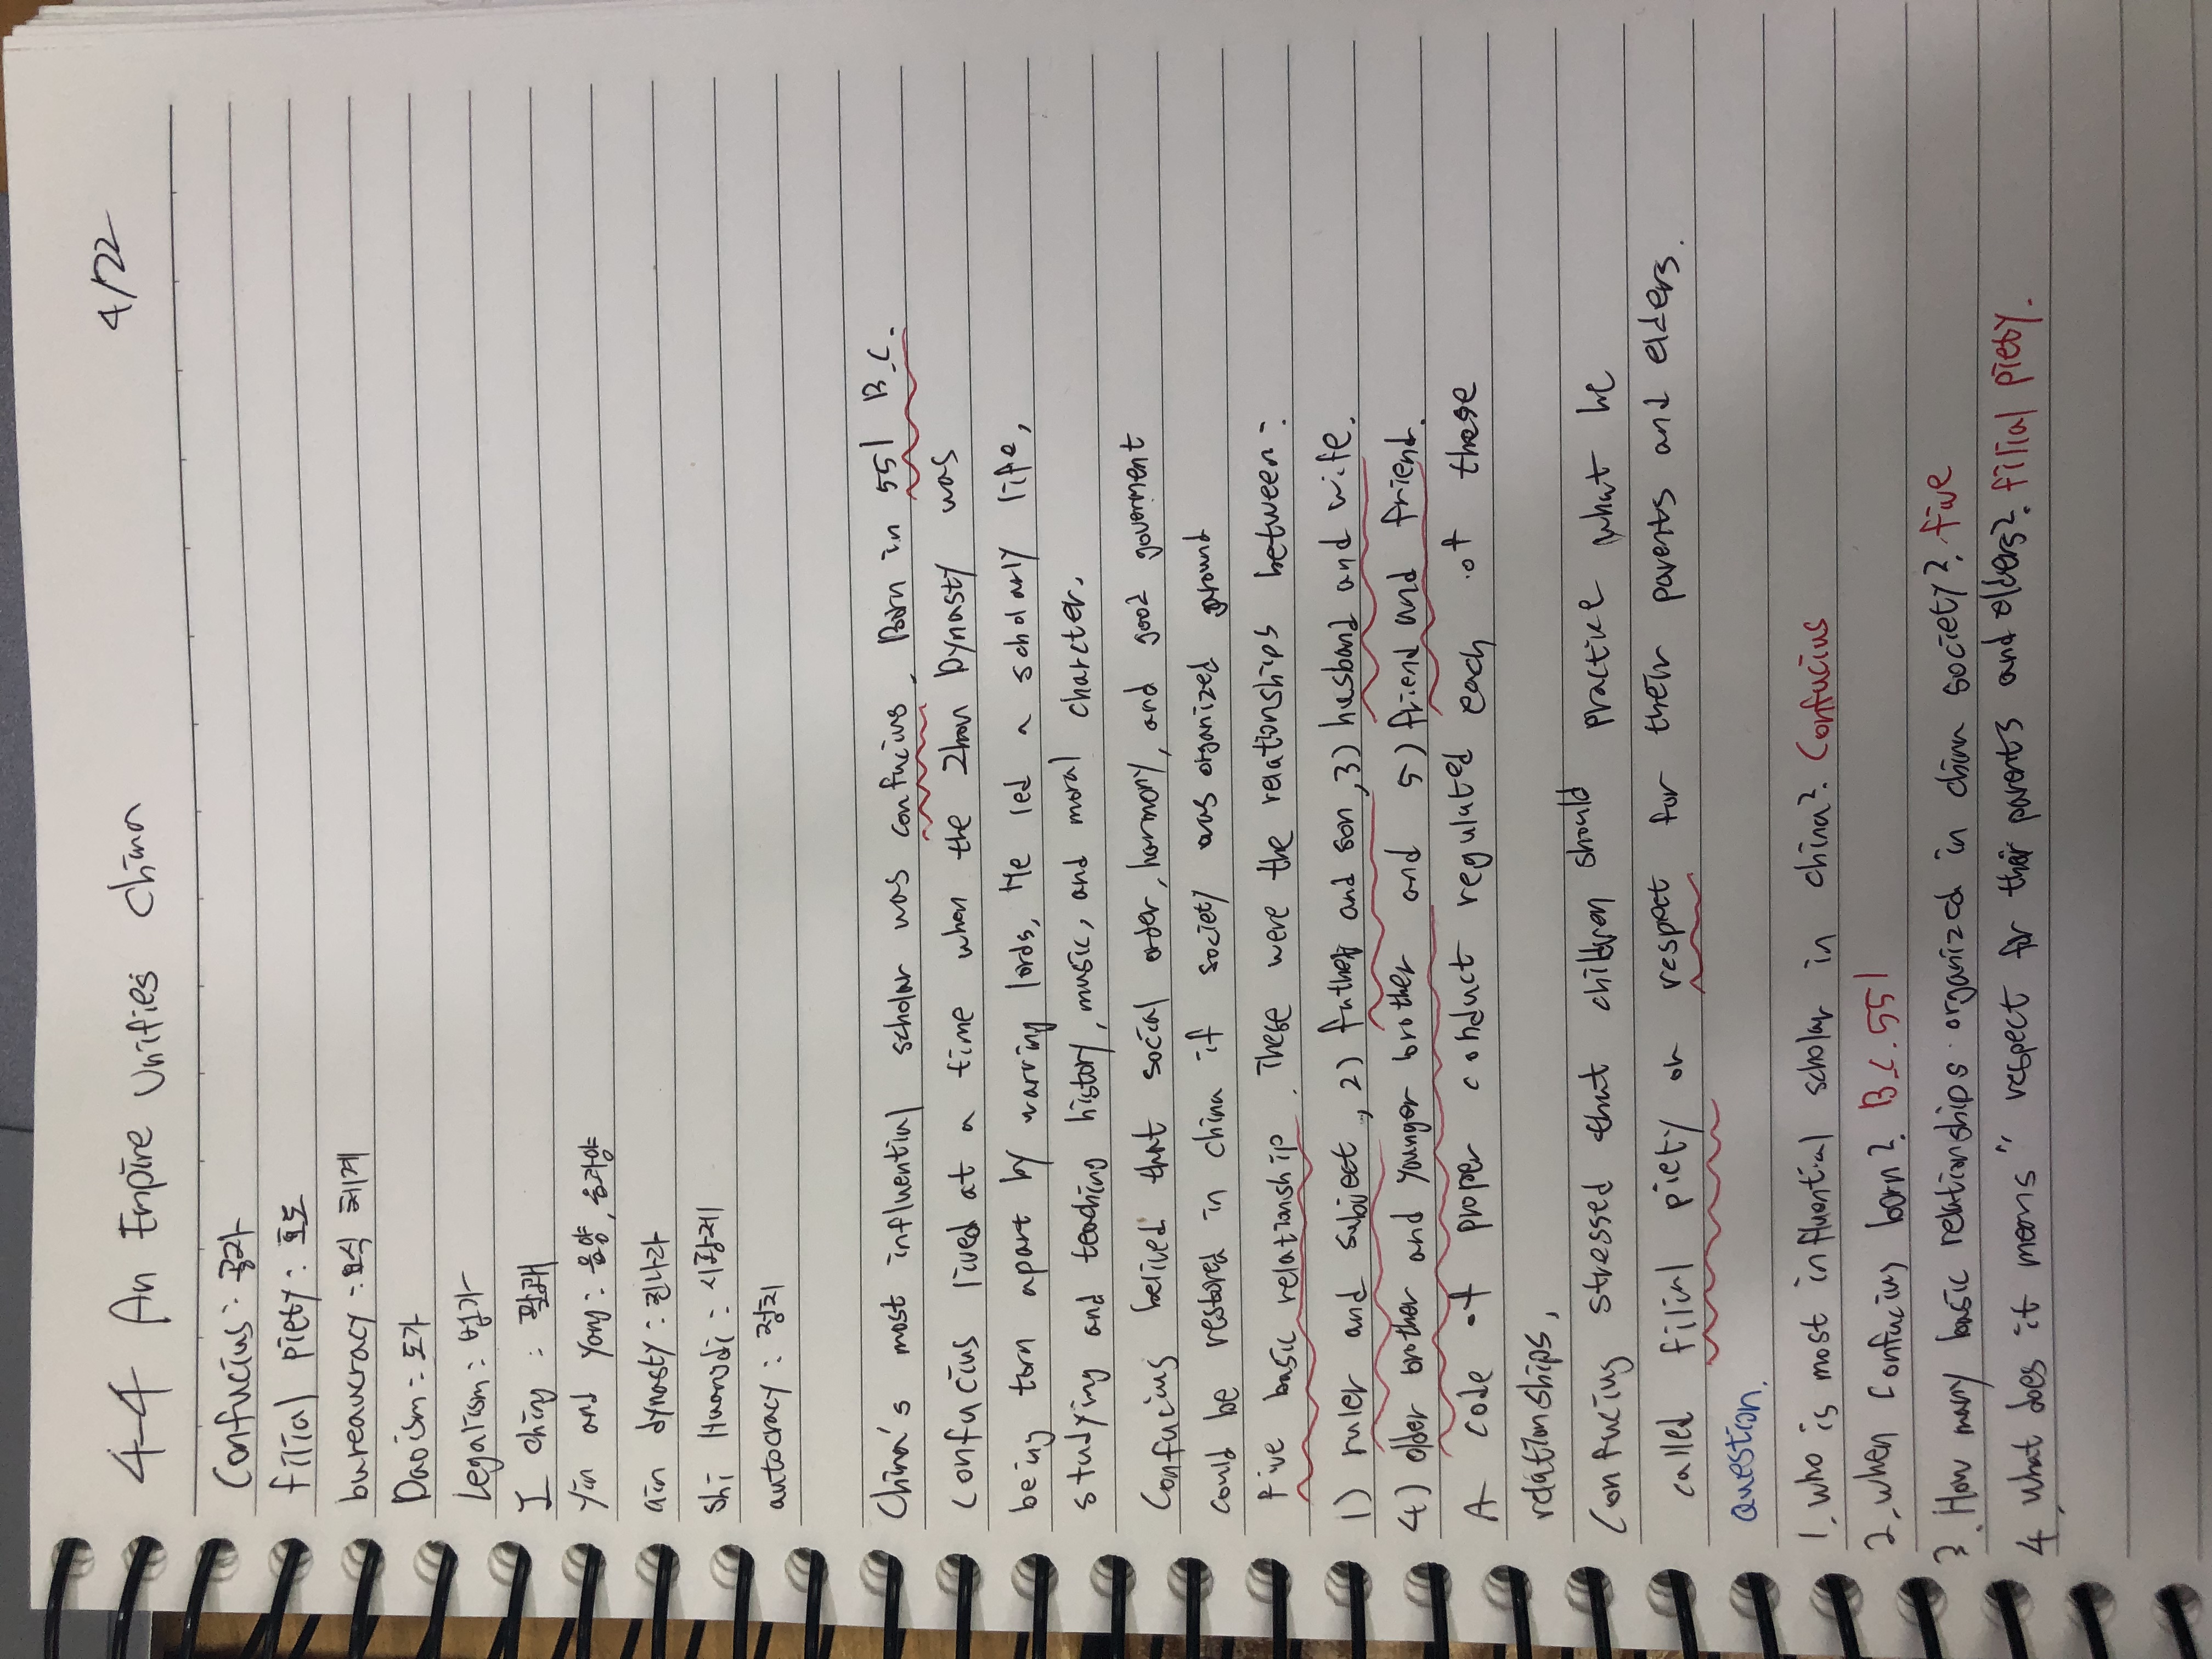 4-4 An Empire Unifies China 4/22
Confucius : 공자
filial piety : 효도
bureaucracy : 요식 체계
Daoism : 도가
Legalism : 법가
I ching :
Yin and Yong : 음양, 음과양
qin dynasty : 진나라
Shi Huandi : 시황제
autocracy : 정치
China's most influential scholar was confucius. Born in 551 B.C.
Confucius lived at a time when the Zhou Dynasty was
being torn apart by warring lords, He led a scholarly life,
studying and teaching history, music, and moral charcter.
Confucius belived that social order, harmony, and good goverment
could be restored in china if society was organized ground
five basic relationship. These were the relationships between :
1) ruler and subject, 2) father and son, 3) husband and wife.
4) older brother and younger brother and 5) friend and friend.
A code of proper conduct regulated each of these
relationships,
Confucius stressed that children should practice what he
called filial piety or respect for their parents and elders.
Question.
1. who is most influential scholar in china? Confucius
2. when Confucius born? B.C. 551
3. How many basic relationships organized in china society? five
4. what does it means " respect for their parents and olders? filial piety.